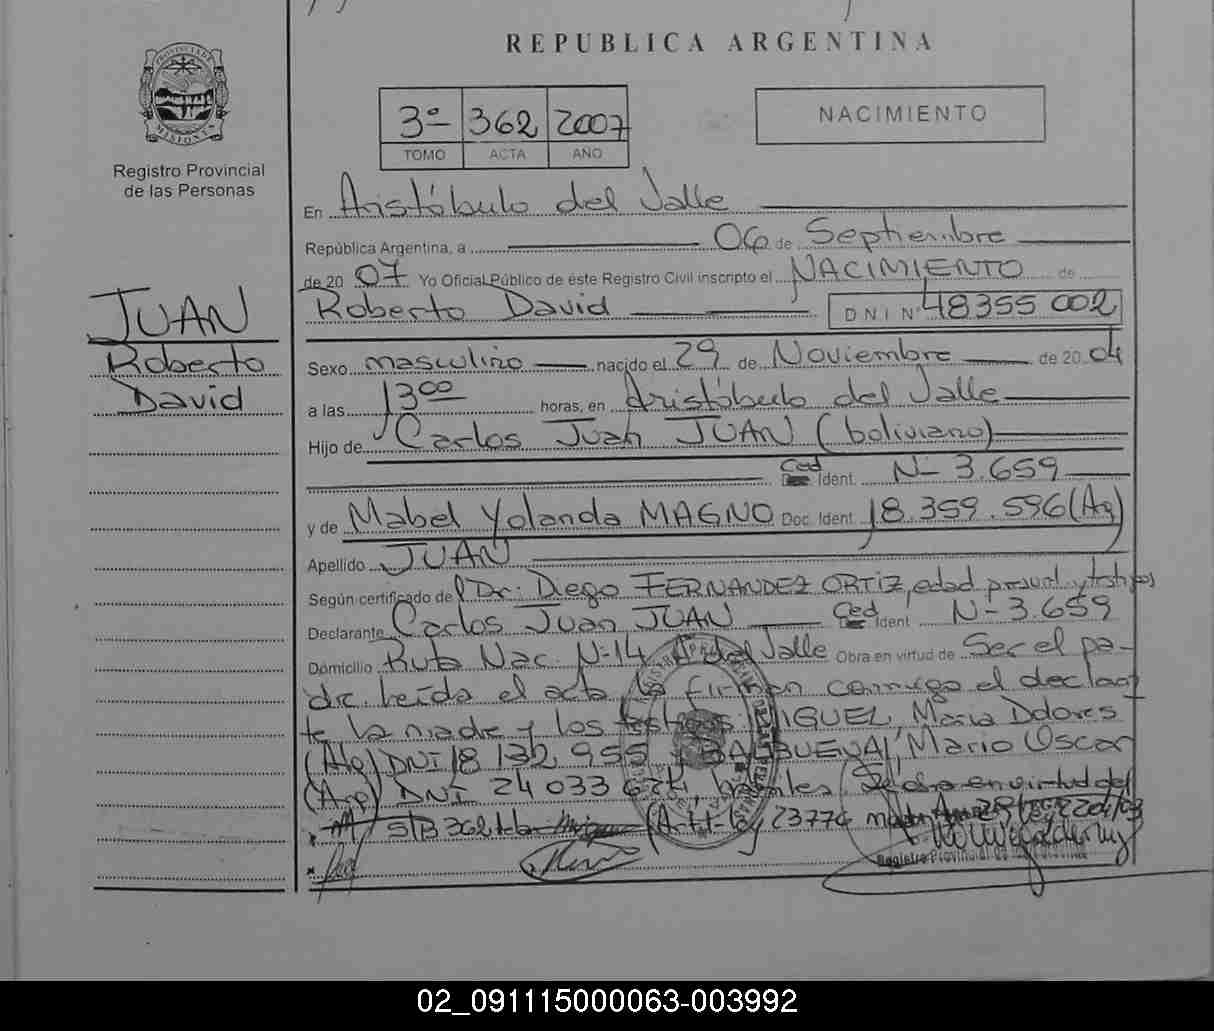 REPUBLICA ARGENTINA
PROVINCIA DE MISIONES
Registro Provincial
de las Personas
3º 362 2007
TOMO ACTA AÑO
NACIMIENTO
En Aristóbulo del Valle
República Argentina, a 06 de Septiembre
de 20 07 Yo Oficial Público de éste Registro Civil inscripto el NACIMIENTO de
Roberto David DNI Nº 48355 002
JUAN
Roberto
David
Sexo masculino nacido el 29 de Noviembre de 20 04
a las 13 00 horas, en Aristóbulo del Valle
Hijo de Carlos Juan JUAN (boliviano)
Ced Ident. N- 3.659
y de Mabel Yolanda MAGNO Doc. Ident. 18.359.596 (Ag)
Apellido JUAN
Según certificado de l Dr. Diego FERNANDEZ ORTIZ, edad presunt. y testigos
Declarante Carlos Juan JUAN Ced Ident N-3.659
Domicilio Ruta Nac. N-14 A. del Valle Obra en virtud de Ser el pa-
dre. Leída el acta, la firman conmigo el declaran
te la madre y los testigos: MIGUEL, María Dolores
(Ag) DNI 18 132 955 BALBUENA, Mario Oscar
(Arg) DNI 24 033 hábiles. Se obra en virtud del
S/B 362 23774
Registro Provincial de las Personas
02_091115000063-003992